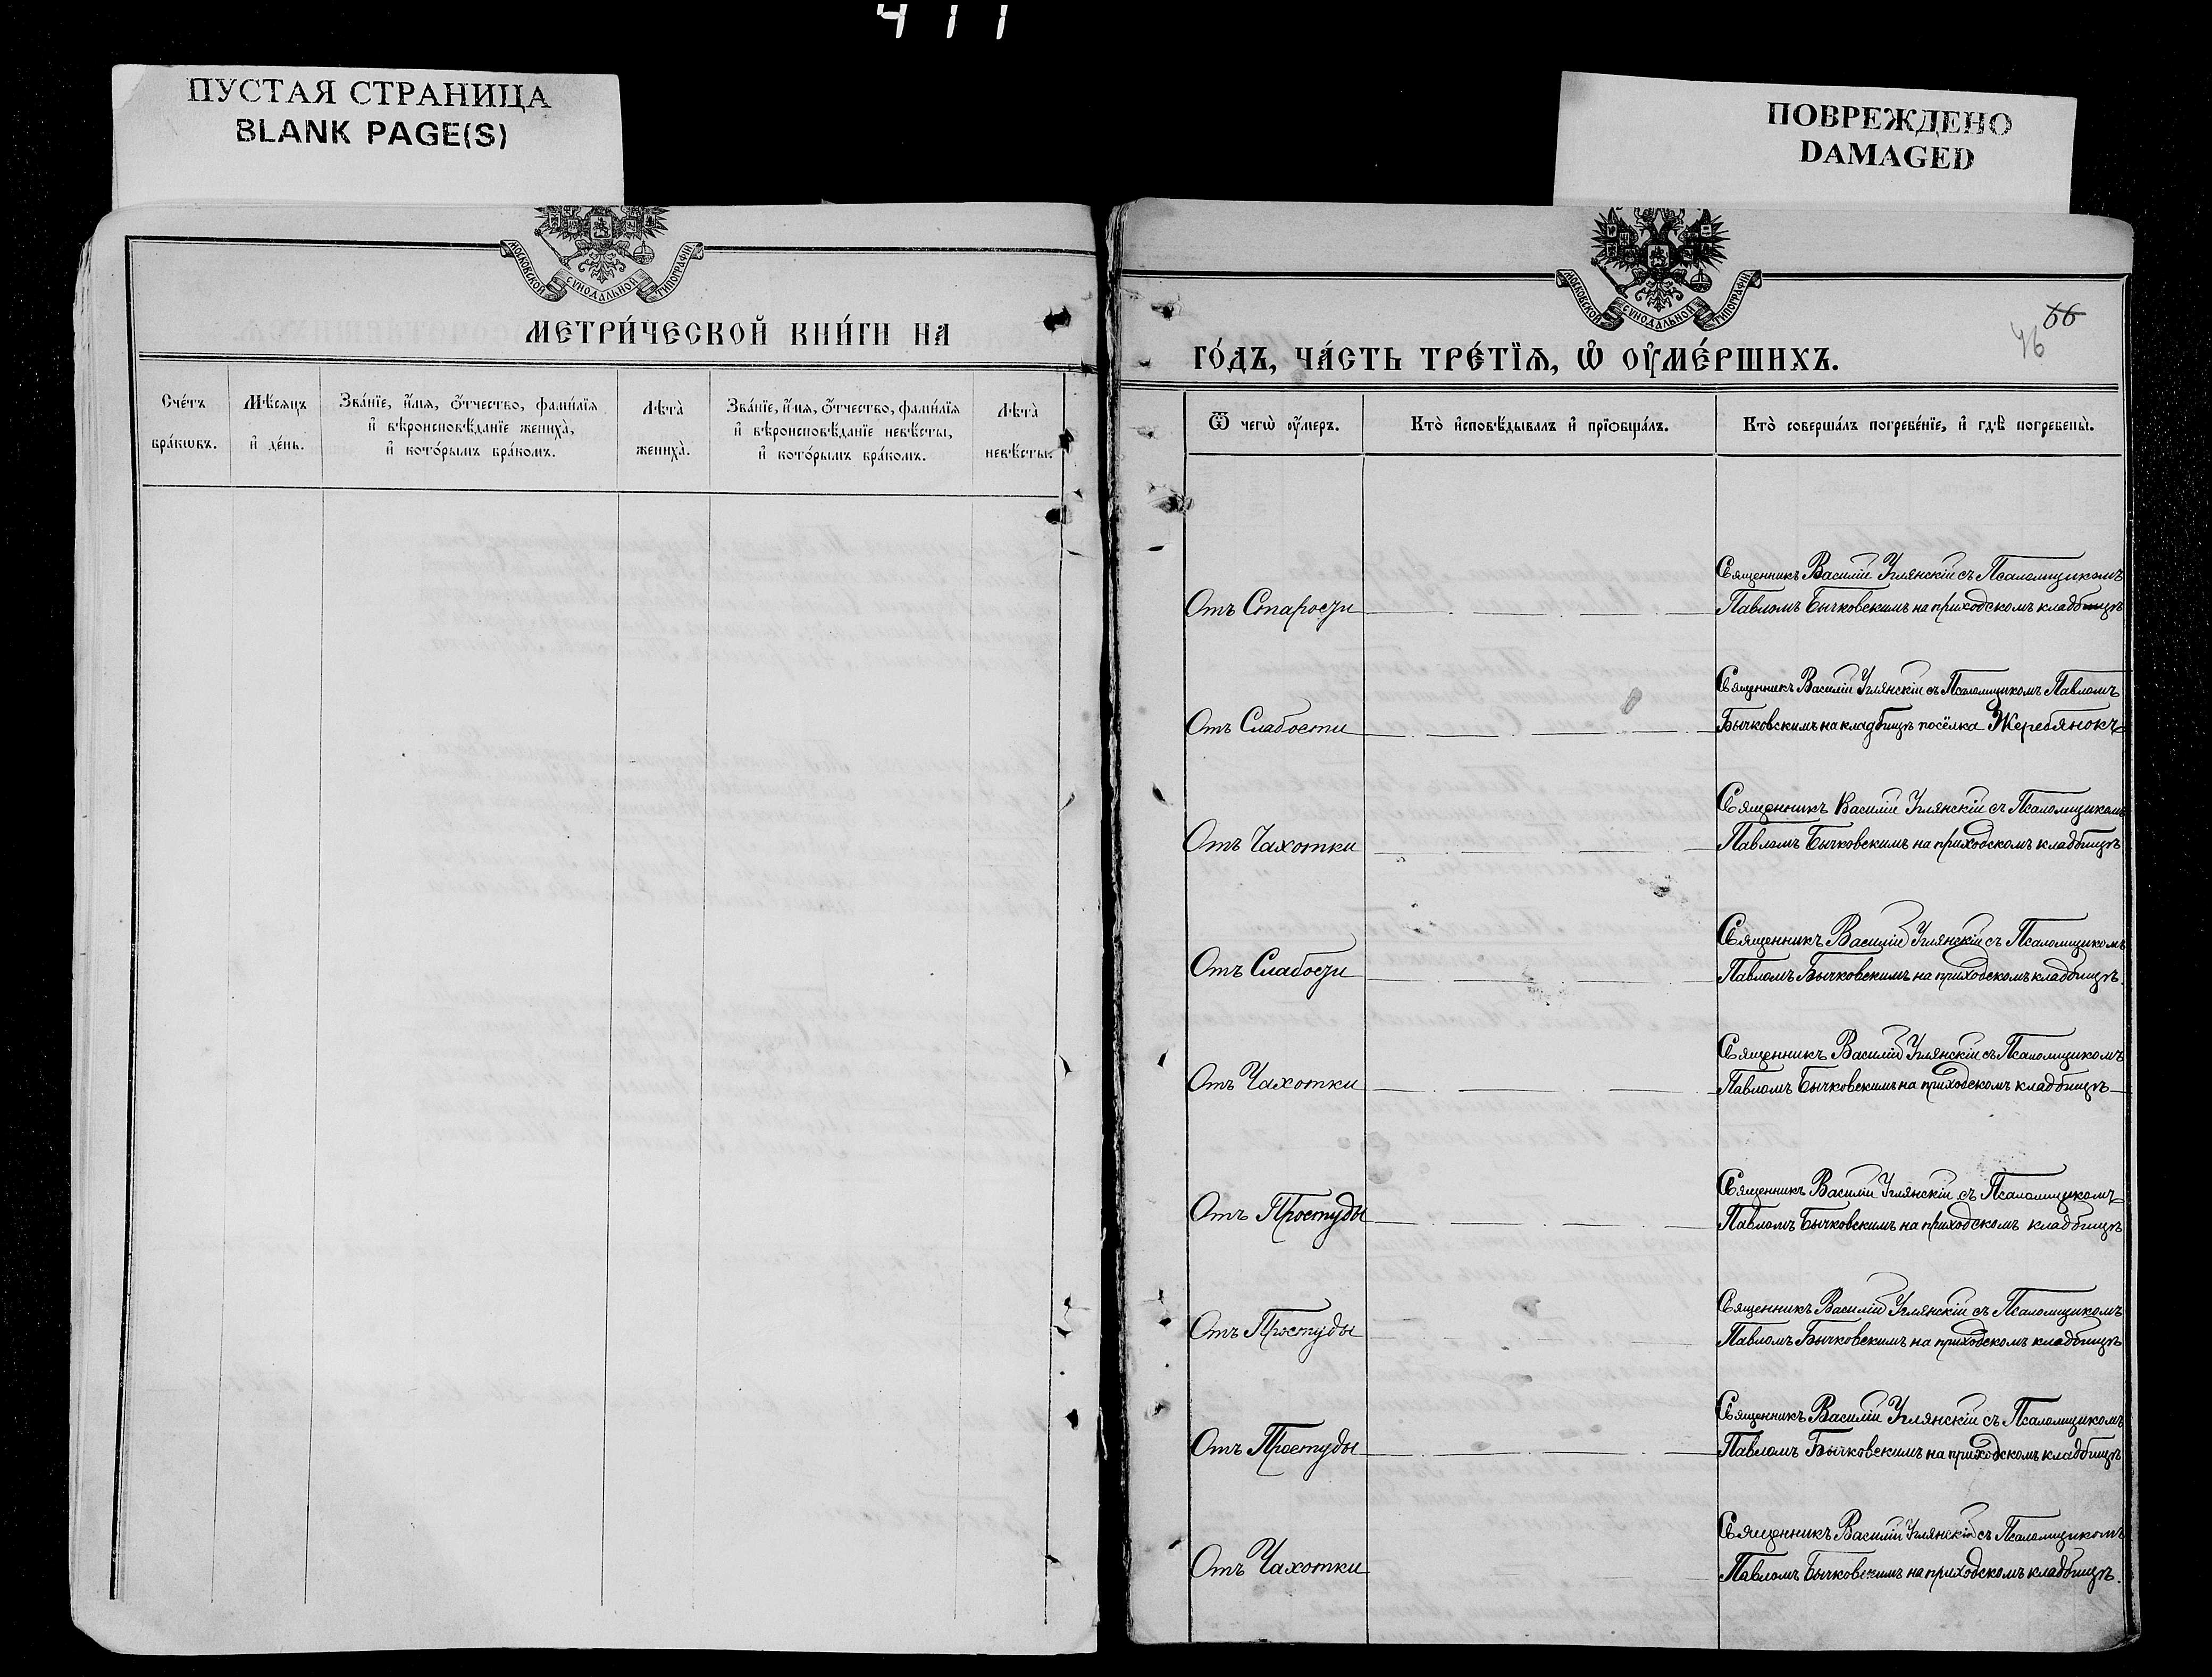 411
ПУСТАЯ СТРАНИЦА
BLANK PAGE(S)
ПОВРЕЖДЕНО
DAMAGED
МОСКОВСКОЙ СѴНОДАЛЬНОЙ ТИПОГРАФІИ
МЕТРИ́ЧЕСКОЙ КНИ́ГИ НА
Сче́тъ бра́кѡвъ.
Мѣ́сѧцъ и҆ де́нь.
Зва́нїе, и҆́мѧ, ѻ҆́тчество, фами́лїѧ
и҆ вѣроисповѣ́данїе жениха̀,
и҆ кото́рымъ бра́комъ.
Лѣта̀ жениха̀.
Зва́нїе, и҆́мѧ, ѻ҆́тчество, фами́лїѧ
и҆ вѣроисповѣ́данїе невѣ́сты,
и҆ кото́рымъ бра́комъ.
Лѣта̀ невѣ́сты.
МОСКОВСКОЙ СѴНОДАЛЬНОЙ ТИПОГРАФІИ
66
46
ГО́ДЪ, ЧА́СТЬ ТРЕ́ТЇѦ, Ѡ҆ ОУ҆МЕ́РШИХЪ.
Ѿ чегѡ̀ оу҆́меръ.
Кто̀ и҆сповѣ́дывалъ и҆ прїѡбща́лъ.
Кто̀ соверша́лъ погребе́нїе, и҆ гдѣ̀ погребены̀.
Священникъ Василій Углянскій съ Псаломщикомъ
Отъ Старости Павломъ Бычковскимъ на приходскомъ кладбищѣ
Священникъ Василій Углянскій съ Псаломщикомъ Павломъ
Отъ Слабости Бычковскимъ на кладбищѣ посёлка Жеребянокъ
Священникъ Василій Углянскій съ Псаломщикомъ
Отъ Чахотки Павломъ Бычковскимъ на приходскомъ кладбищѣ
Священникъ Василій Углянскій съ Псаломщикомъ
Отъ Слабости Павломъ Бычковскимъ на приходскомъ кладбищѣ.
Священникъ Василій Углянскій съ Псаломщикомъ
Отъ Чахотки Павломъ Бычковскимъ на приходскомъ кладбищѣ
Священникъ Василій Углянскій съ Псаломщикомъ
Отъ Простуды Павломъ Бычковскимъ на приходскомъ кладбищѣ
Священникъ Василій Углянскій съ Псаломщикомъ
Отъ Простуды Павломъ Бычковскимъ на приходскомъ кладбищѣ
Священникъ Василій Углянскій съ Псаломщикомъ
Отъ Простуды Павломъ Бычковскимъ на приходскомъ кладбищѣ
Священникъ Василій Углянскій съ Псаломщикомъ
Отъ Чахотки Павломъ Бычковскимъ на приходскомъ кладбищѣ.